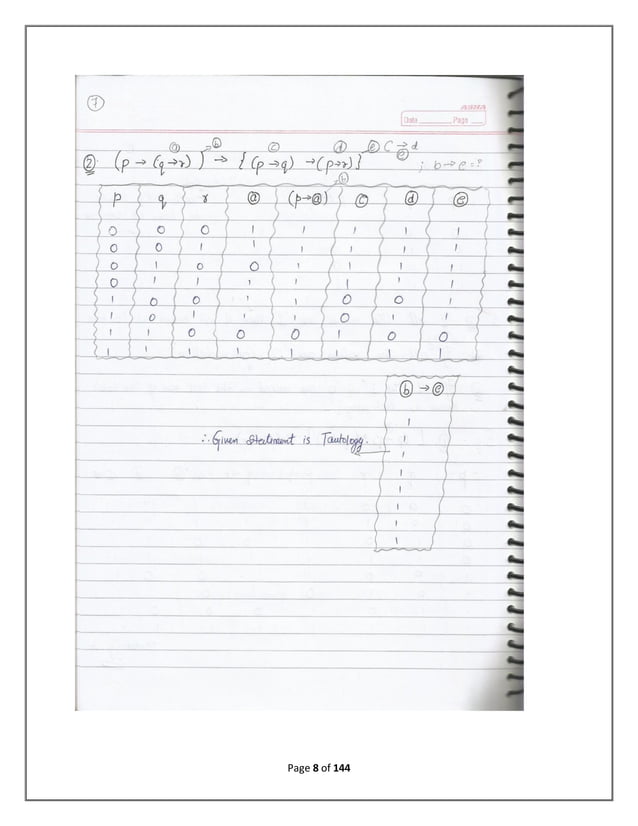 7
ASNA
Date Page
ⓐ ⓑ ⓒ ⓓ ⓔ C → d
ⓔ
② (p → (q→r)) → {(p → q) → (p→r)} ; b → e = ?
ⓑ
p q r ⓐ (p→ⓐ) ⓒ ⓓ ⓔ
0 0 0 1 1 1 1 1
0 0 1 1 1 1 1 1
0 1 0 0 1 1 1 1
0 1 1 1 1 1 1 1
1 0 0 1 1 0 0 1
1 0 1 1 1 0 1 1
1 1 0 0 0 1 0 0
1 1 1 1 1 1 1 1
ⓑ → ⓔ
1
∴ Given Statement is Tautology. 1
1
1
1
1
1
1
Page 8 of 144